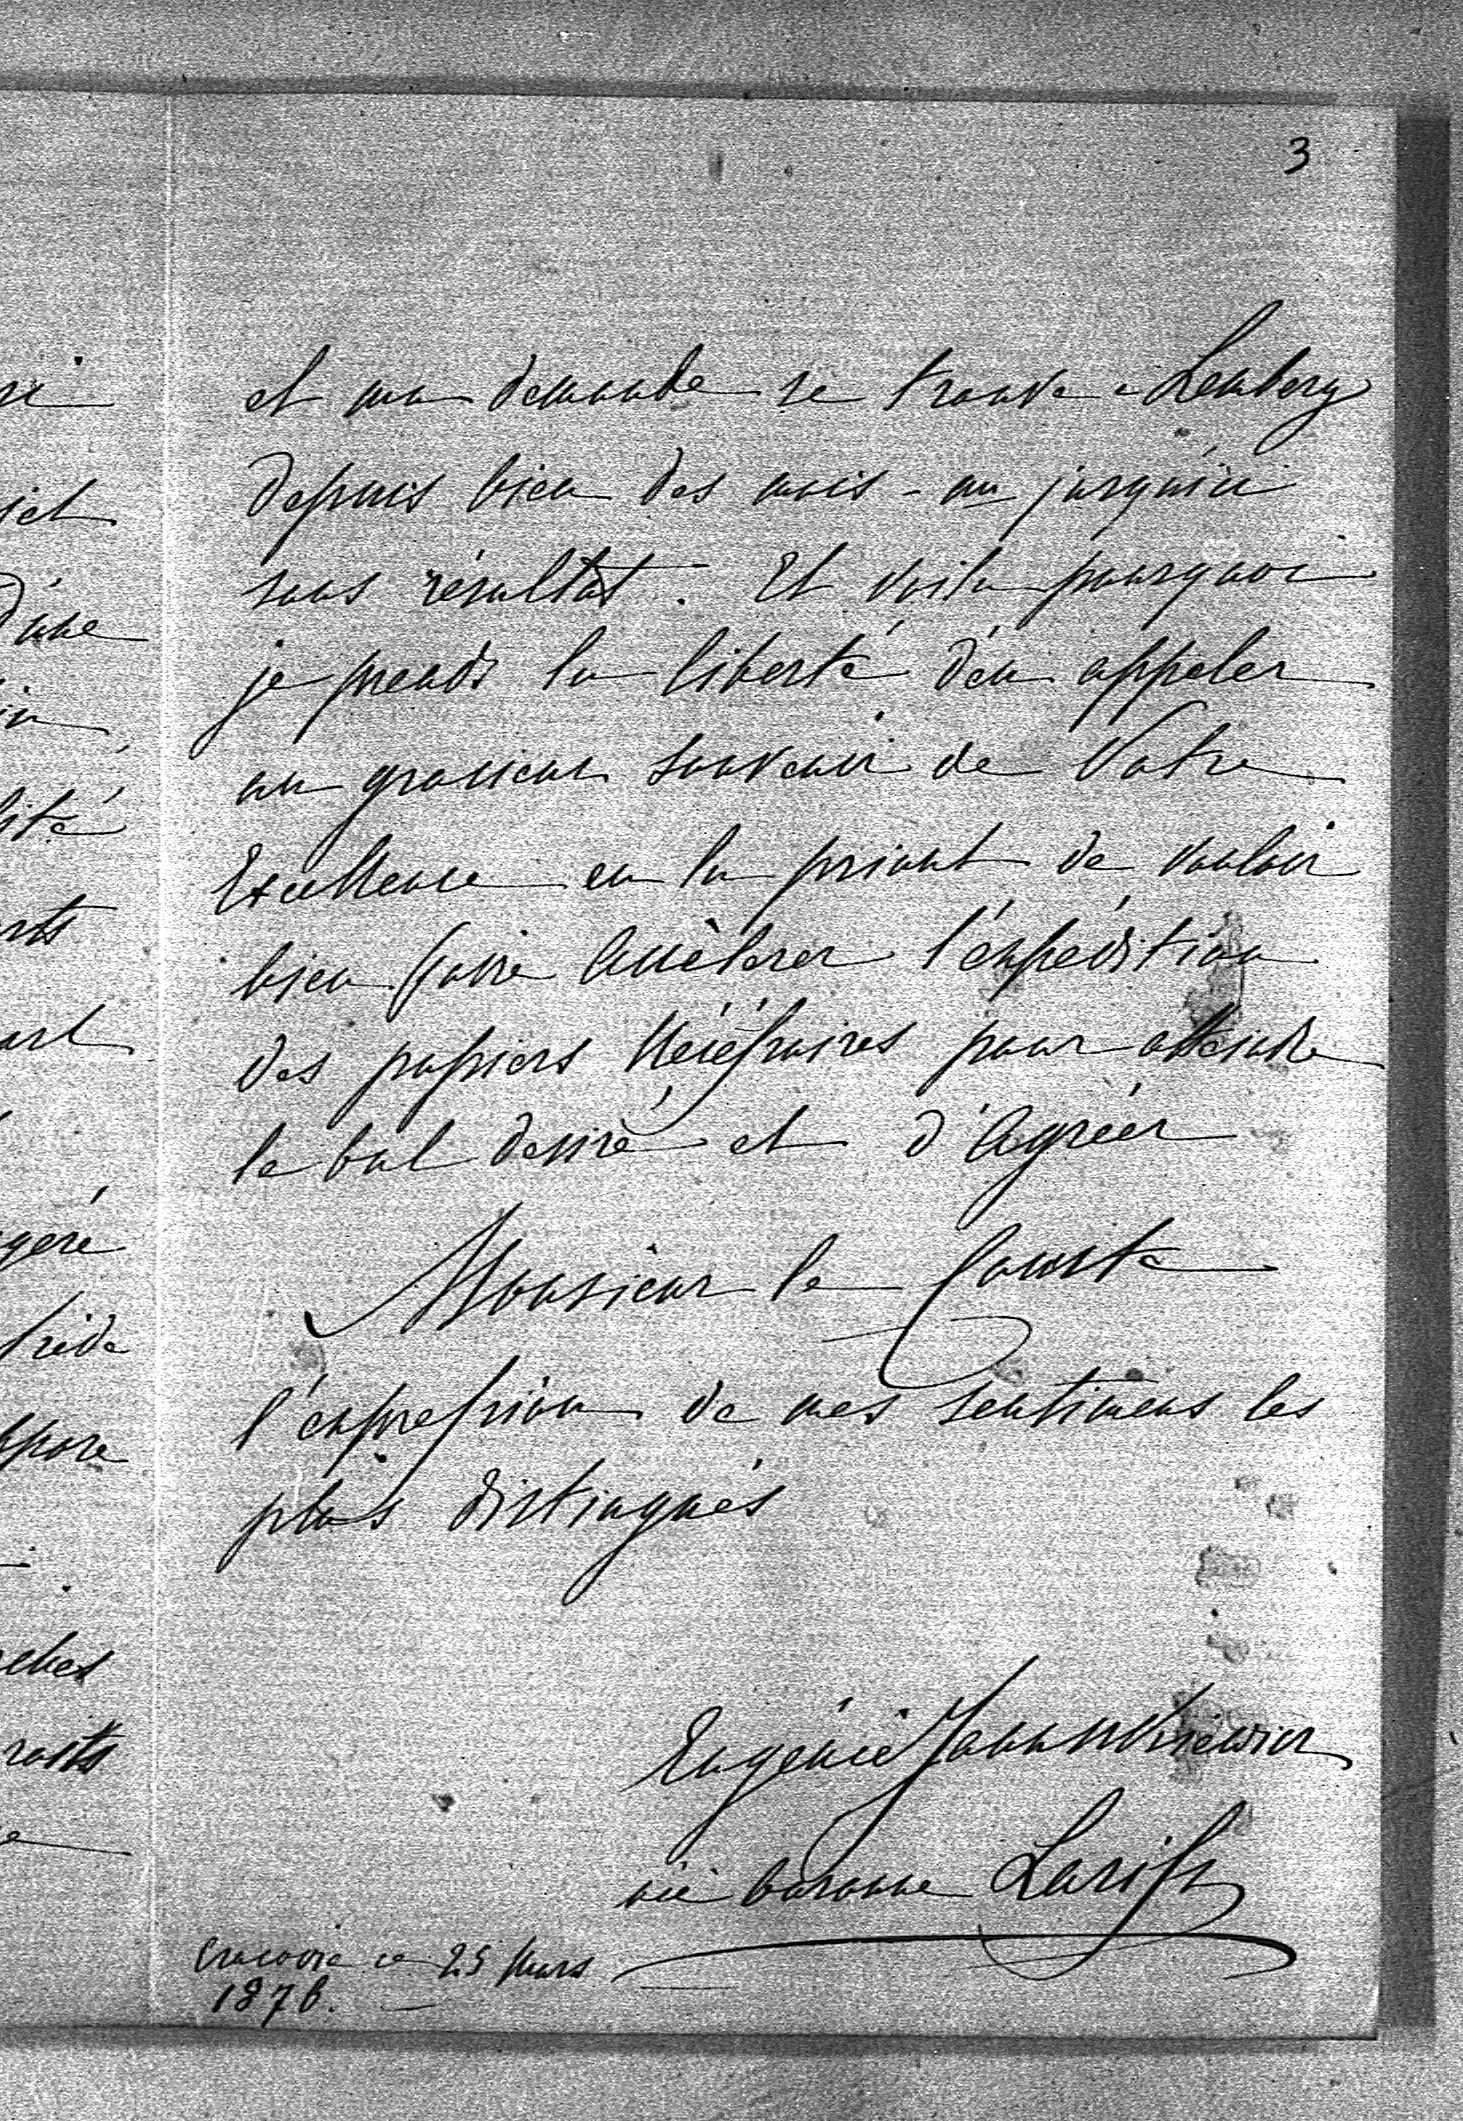 3
et ma demande se trouve a Lemberg
depuis bien des mois - jusqu'ici
sans résultat. Et voila pourquoi
je prends la liberté d'en appeler
au gracieux souvenir de Votre
Excellence en la priant de vouloir
bien faire accèlerer l'éxpédition
des papiers nécéssaires pour atteindre
le but desiré et d'agréer
Monsieur le Comte
l'éxpression de mes sentimens les
plus distingués
Eugénie
née baronne Larish
Cracovie ce 25 Mars
1876.